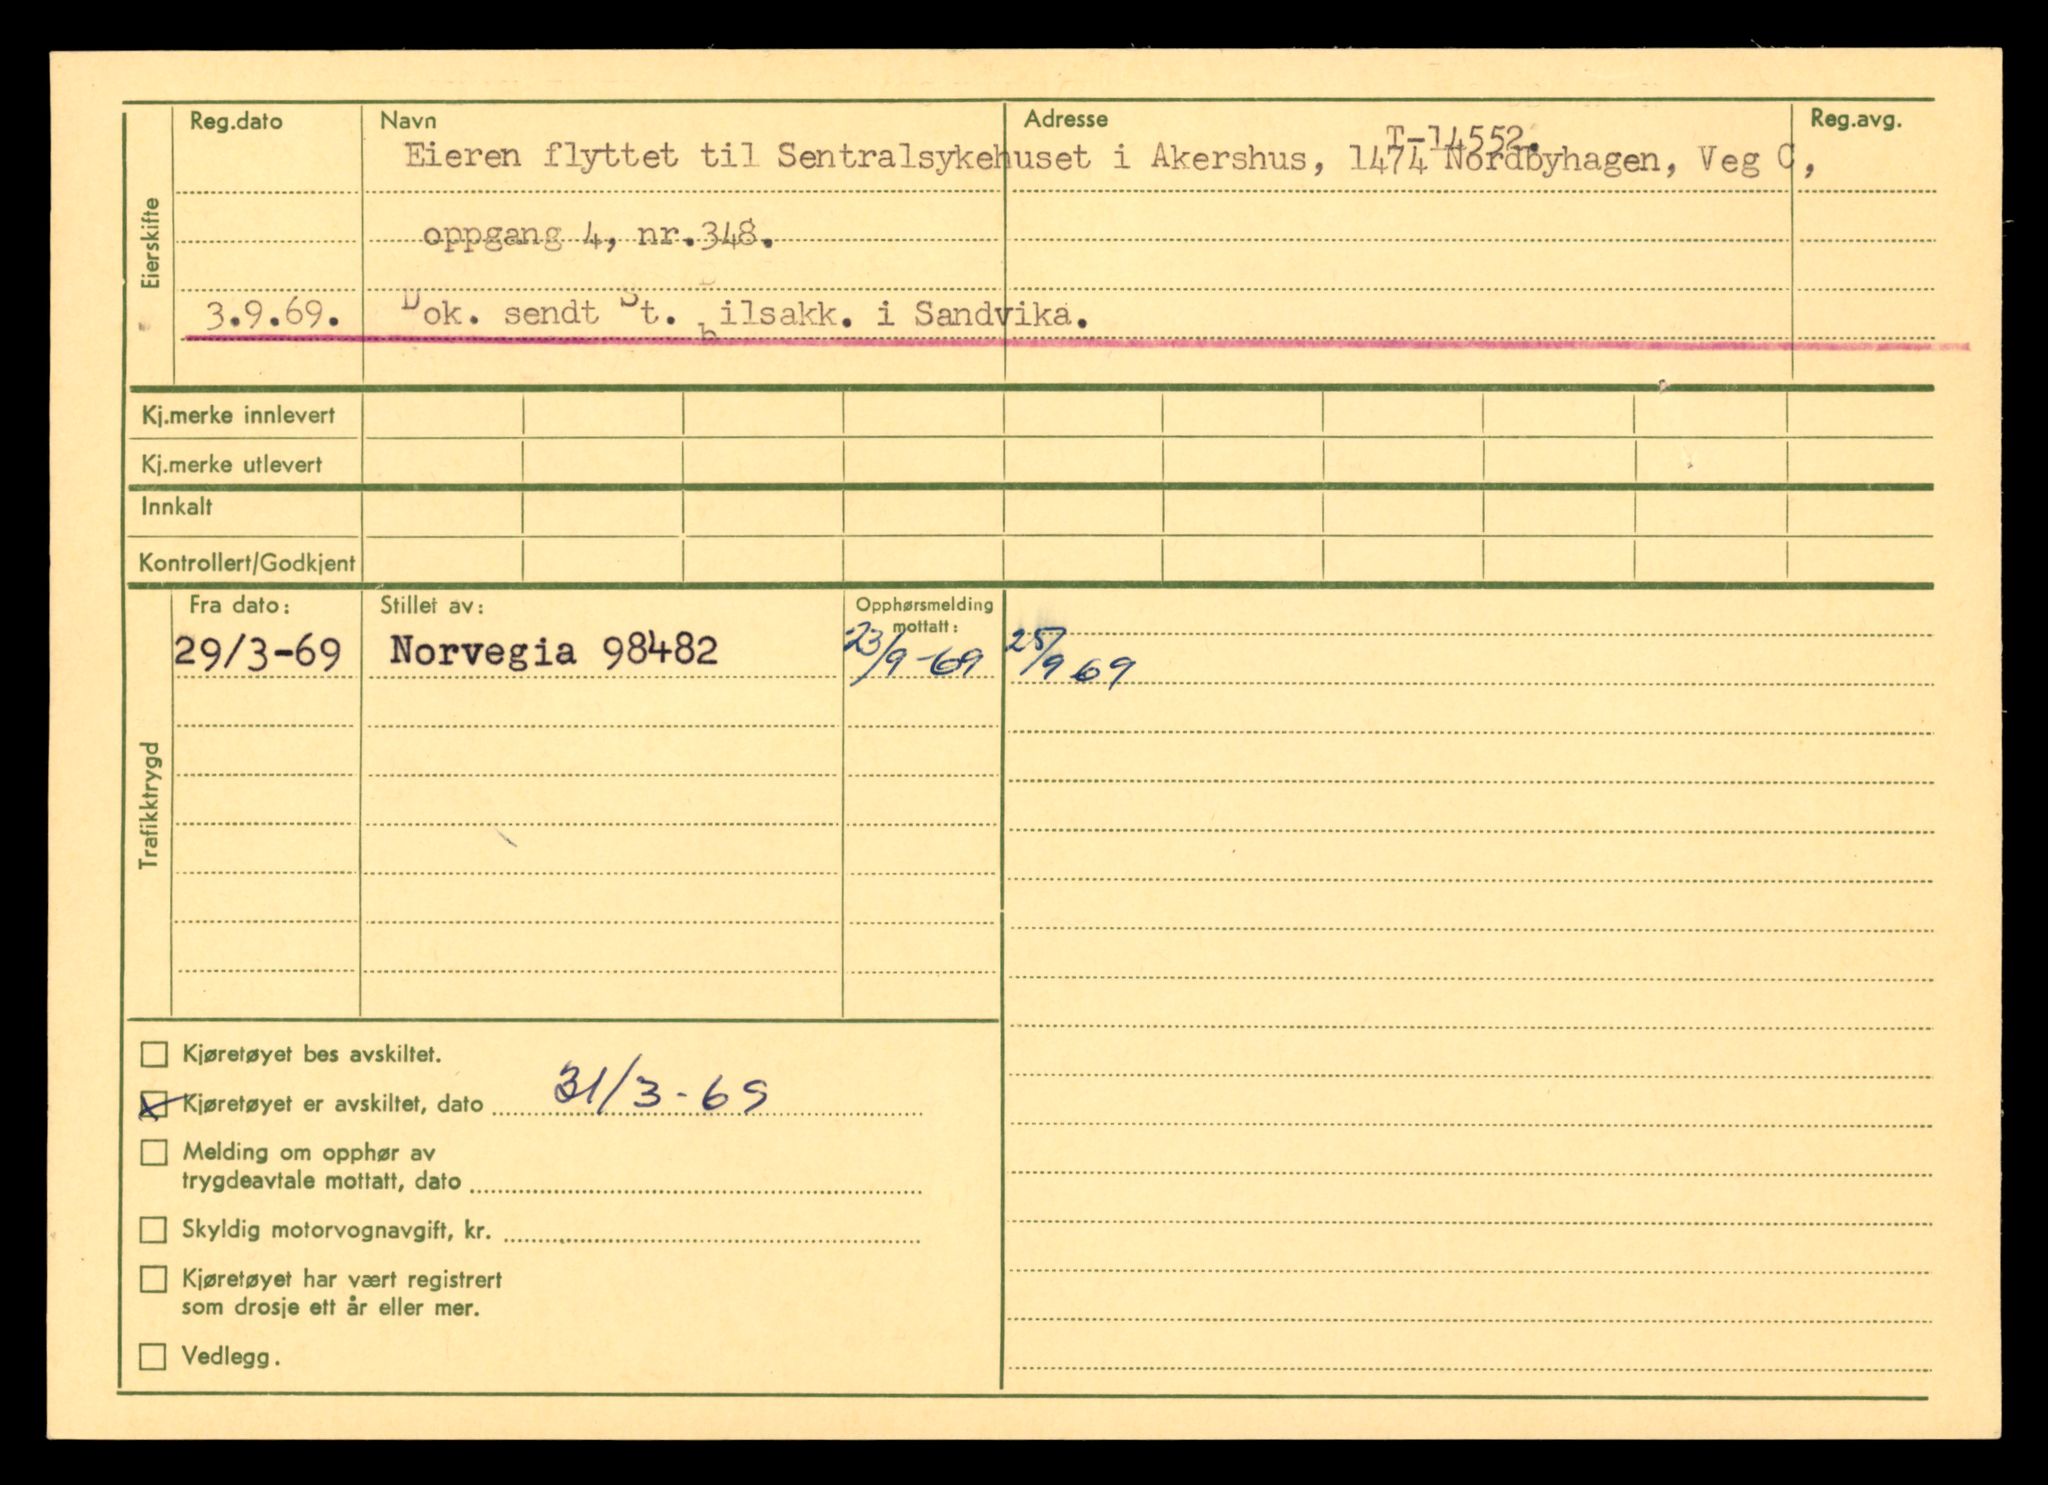 Reg.dato Navn Adresse Reg.avg.
T-14552.
Eieren flyttet til Sentralsykehuset i Akershus, 1474 Nordbyhagen, Veg C,
oppgang 4, nr.348.
Eierskifte
3.9.69. Dok. sendt St. bilsakk. i Sandvika.
Kj.merke innlevert
Kj.merke utlevert
Innkalt
Kontrollert/Godkjent
Fra dato: Stillet av: Opphørsmelding
mottatt:
29/3-69 Norvegia 98482 23/9-69 25/9 69
Trafikktrygd
Kjøretøyet bes avskiltet.
Kjøretøyet er avskiltet, dato 31/3-69
Melding om opphør av
trygdeavtale mottatt, dato
Skyldig motorvognavgift, kr.
Kjøretøyet har vært registrert
som drosje ett år eller mer.
Vedlegg.